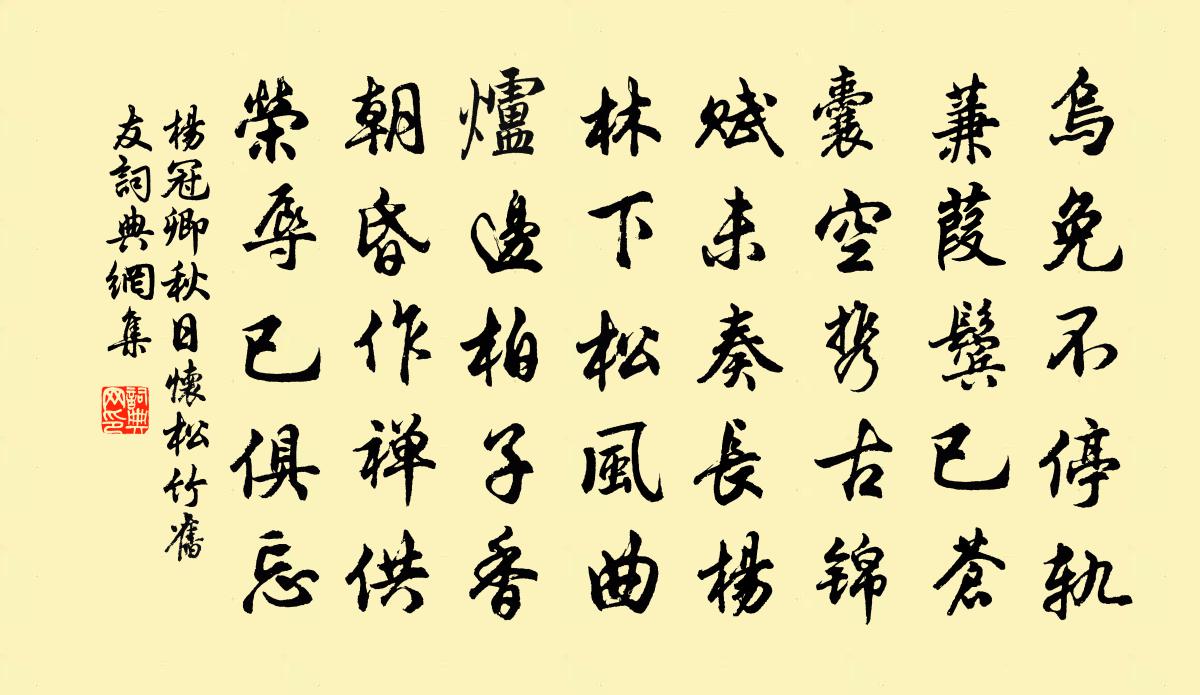 烏兔不停軌
蒹葭鬢已蒼
囊空携古锦
賦未奏長楊
林下松風曲
爐邊柏子香
朝昏作禅供
榮辱已俱忘
楊冠卿秋日懷松竹舊
友詞典網集
詞典
网印